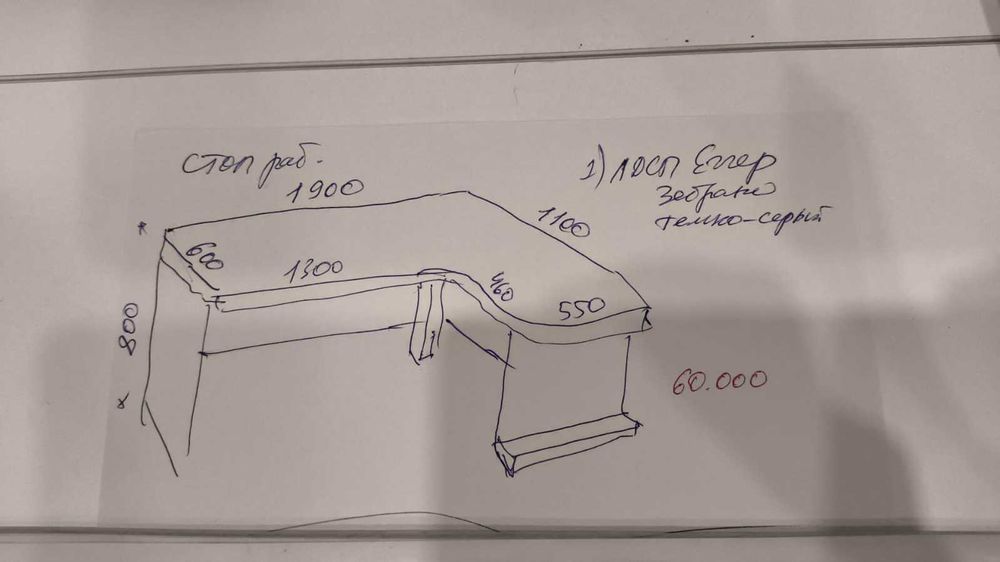 стол раб.
1900
1) ЛДСП Еггер
Зебрано
темно-серый
1100
600
1300
460
550
800
60.000